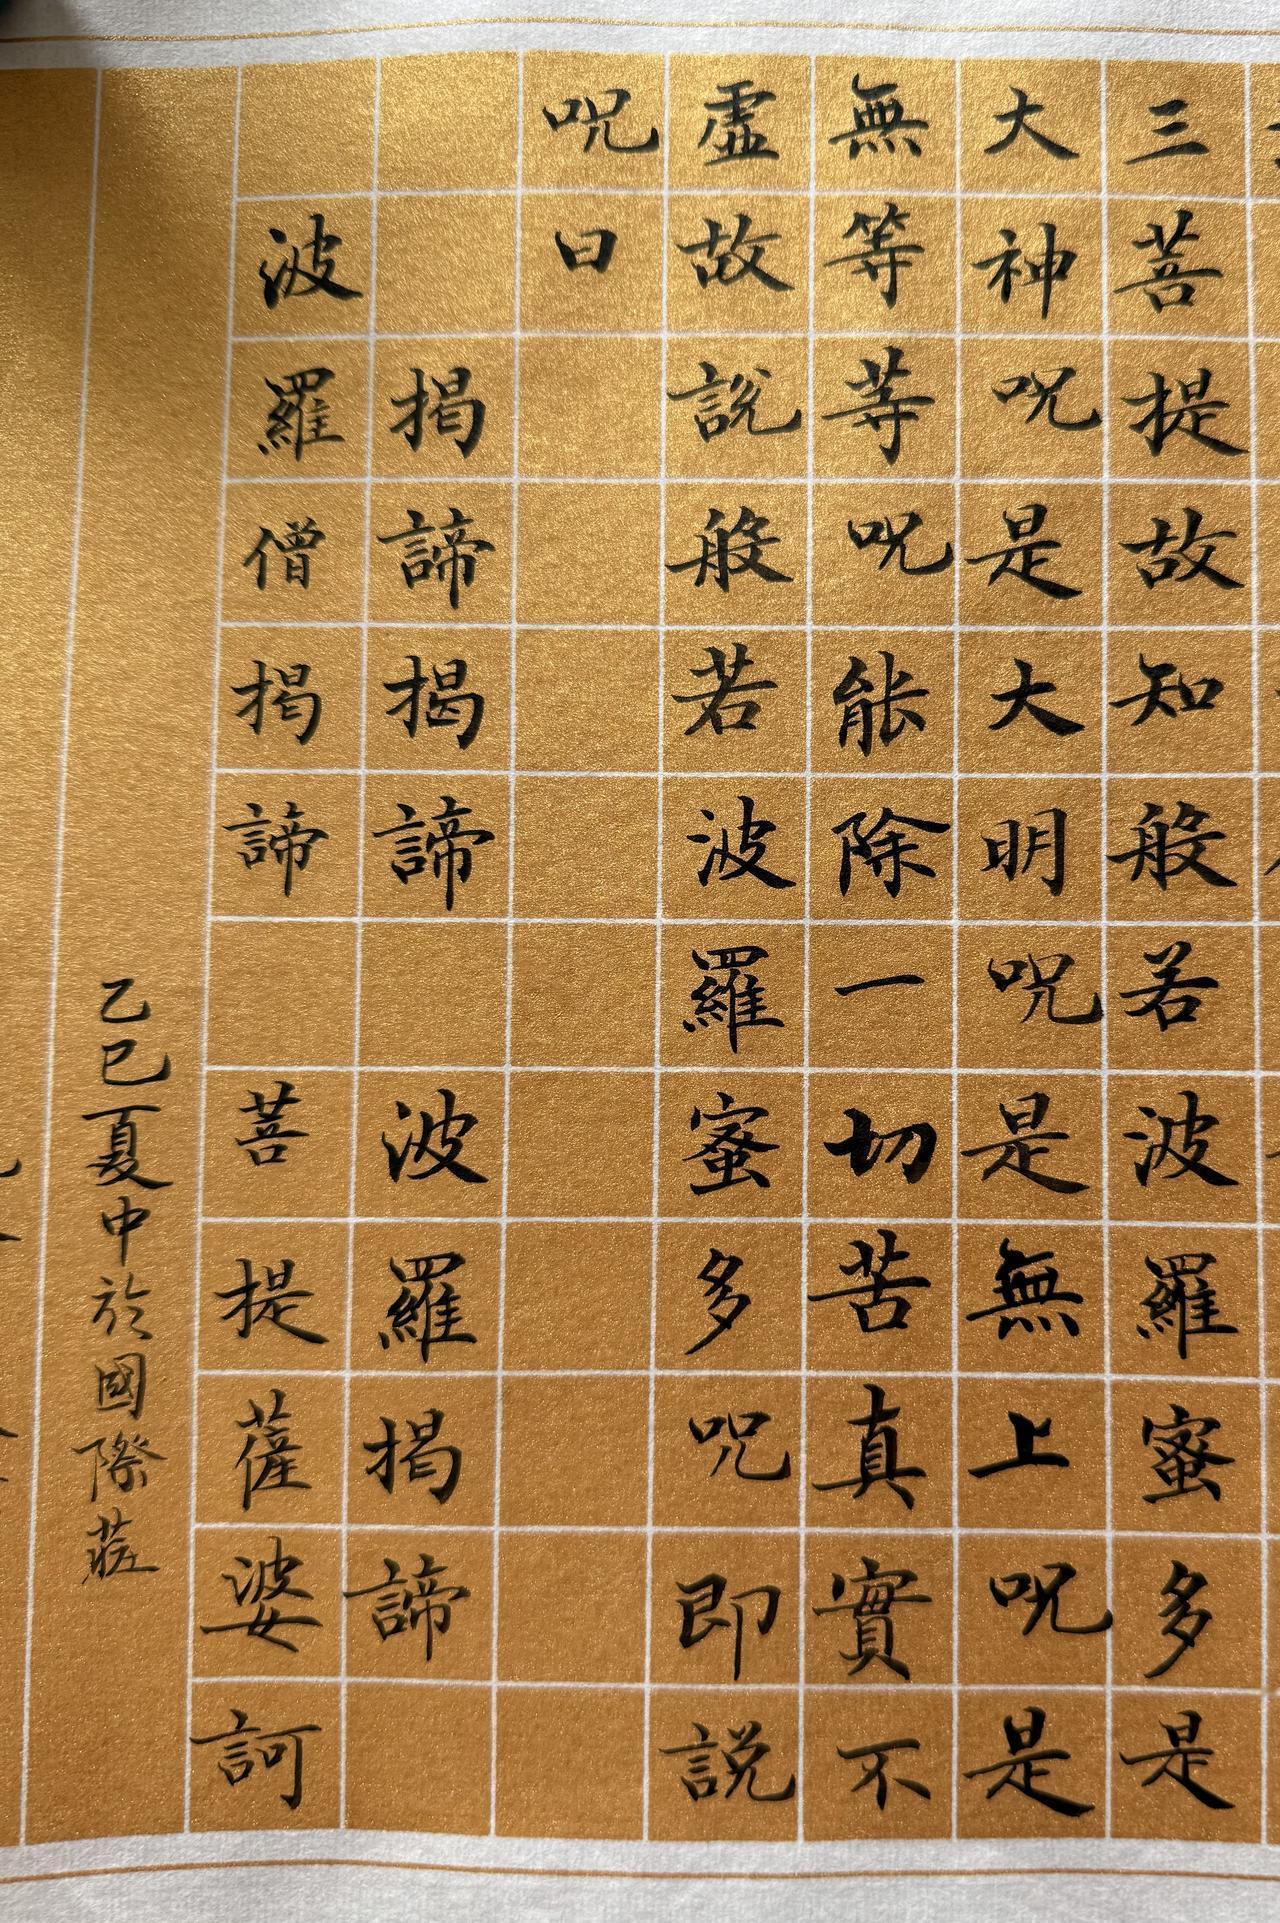 三菩提故知般若波羅蜜多是
大神呪是大明呪是無上呪是
無等等呪能除一切苦真實不
虛故說般若波羅蜜多呪即説
呪曰
揭諦揭諦 波羅揭諦
波羅僧揭諦 菩提薩婆訶
乙巳夏中於國際莊